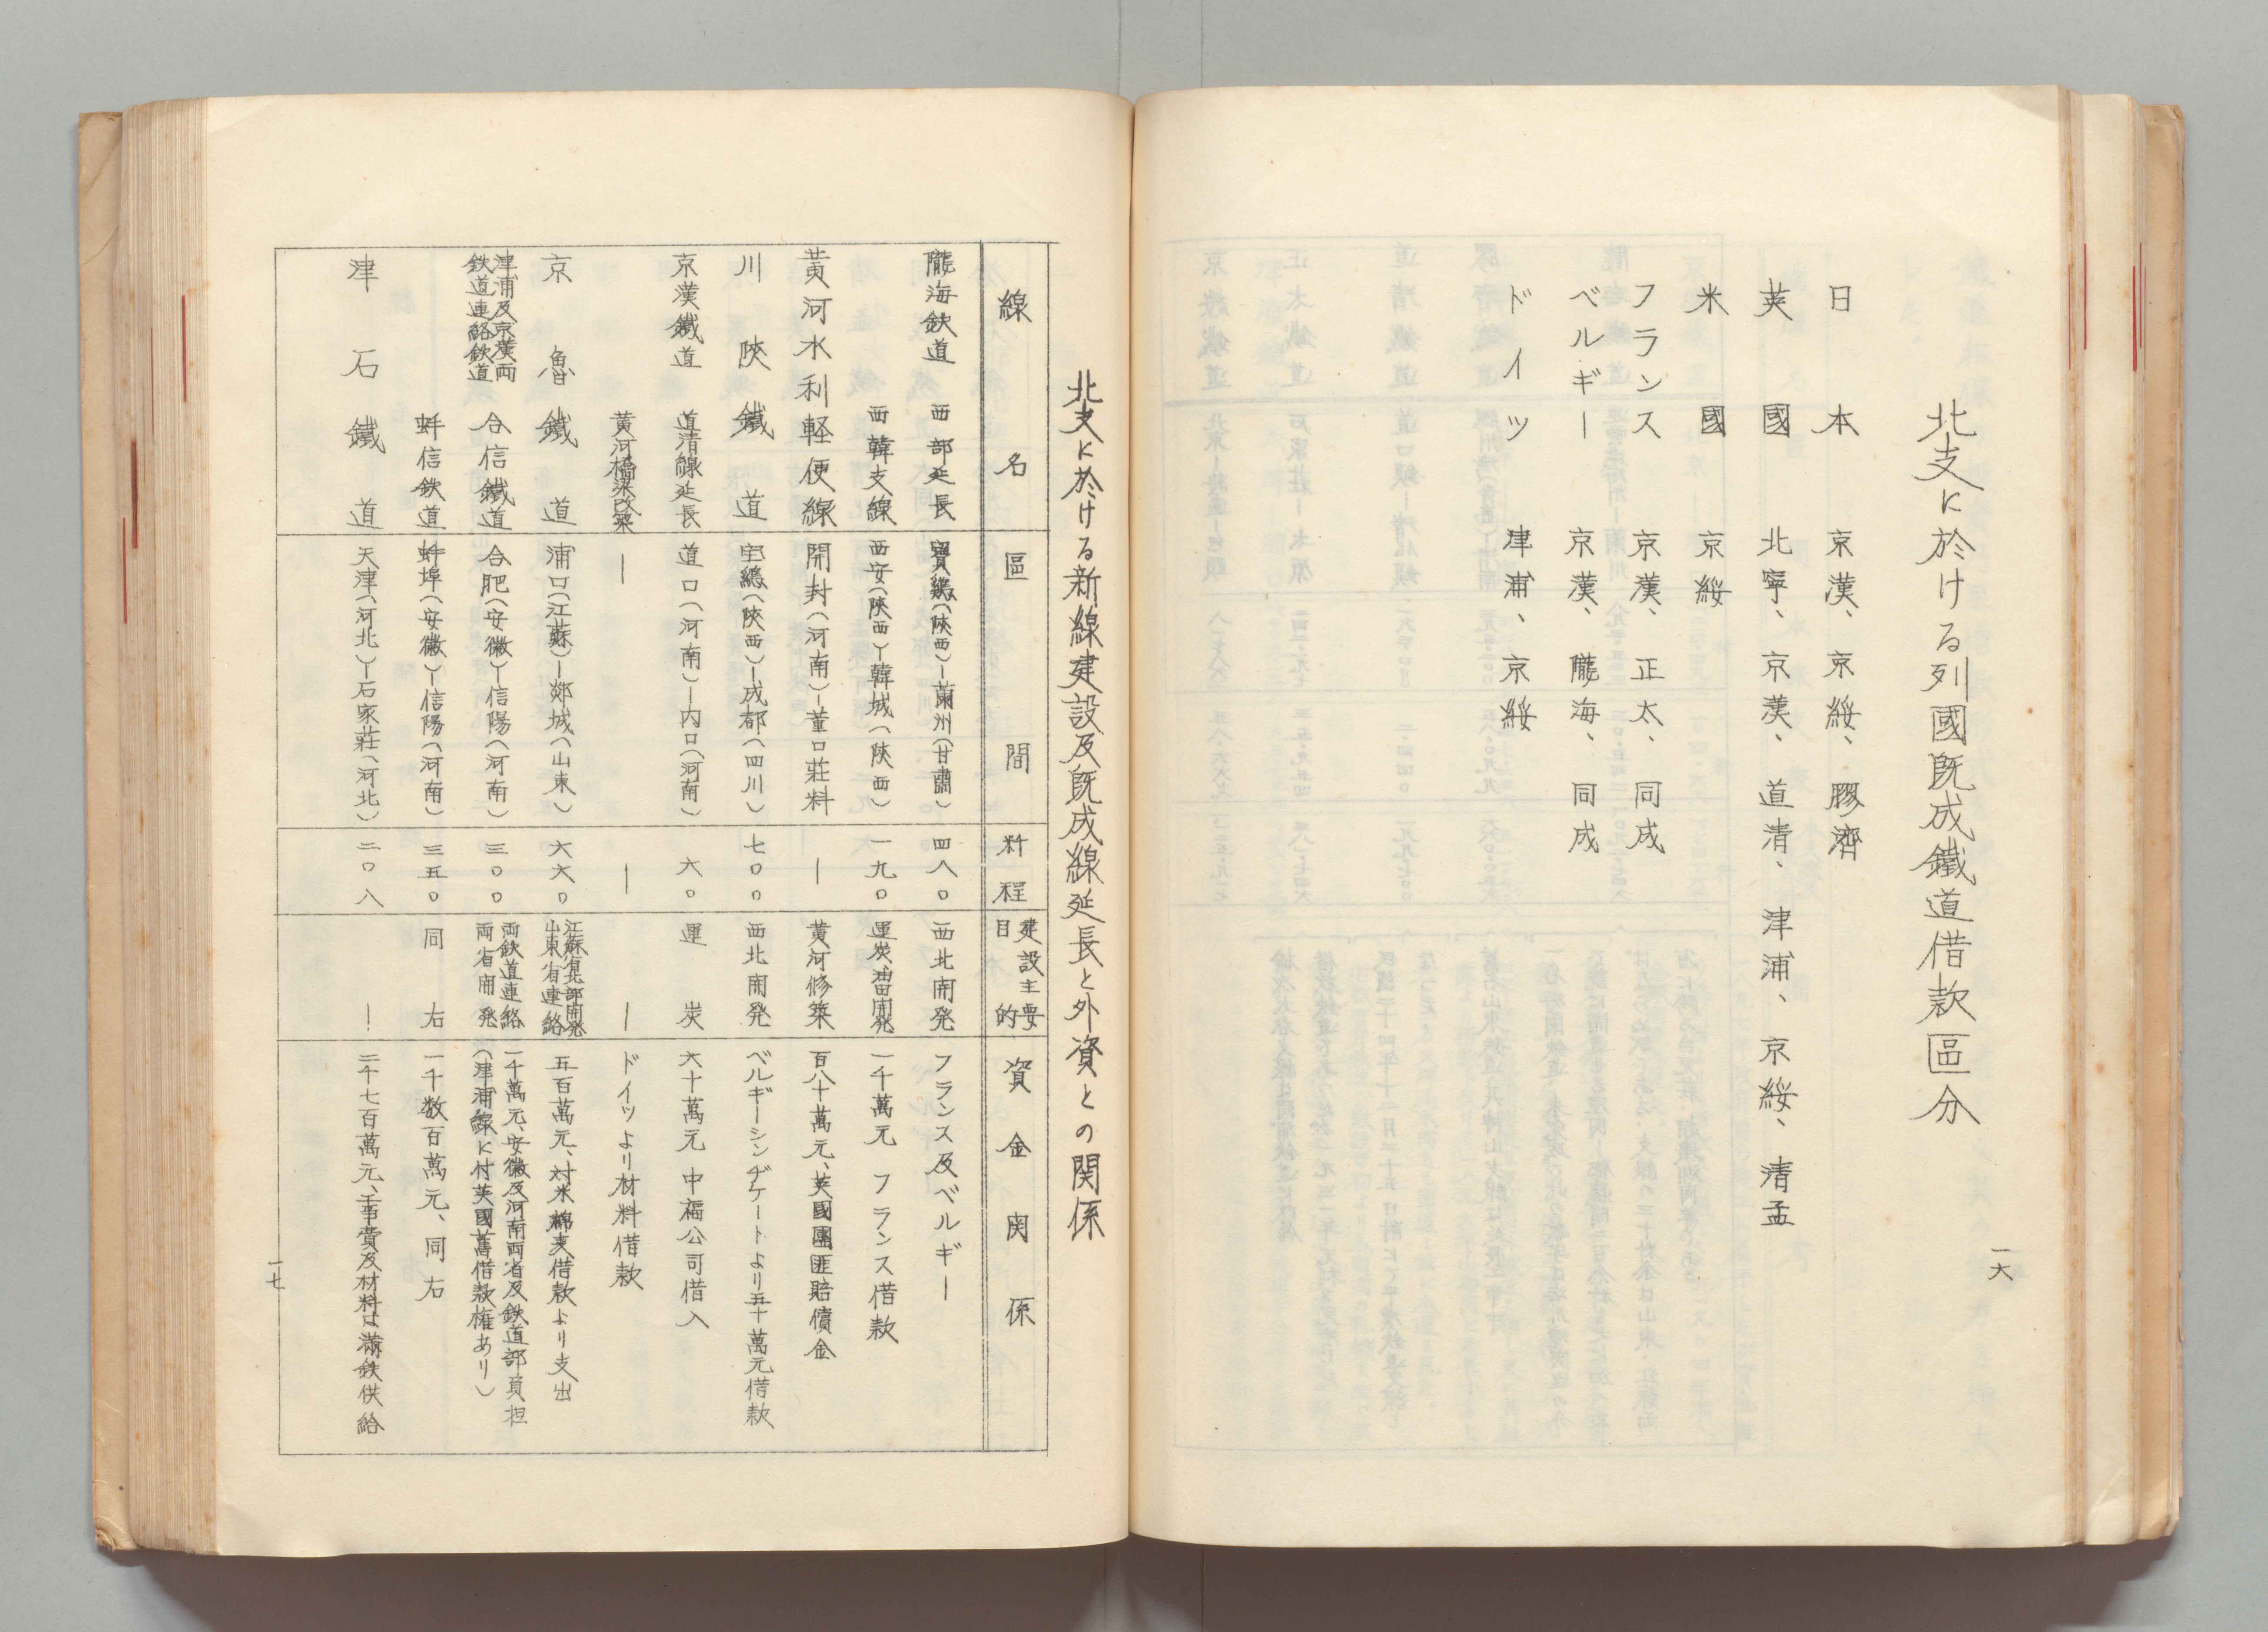 北支に於ける列國既成鐵道借款區分
日本 京漢、京綏、膠濟
英國 北寧、京漢、道清、津浦、京綏、清孟
米國 京綏
フランス 京漢、正太、同成
ベルギー 京漢、隴海、同成
ドイツ 津浦、京綏
一六
北支に於ける新線建設及既成線延長と外資との関係
線名 區間 粁程 建設主要目的 資金関係
隴海鉄道 西部延長 寶鶏(陝西)―蘭州(甘肅) 四八〇 西北開発 フランス及ベルギー
西韓支線 西安(陝西)―韓城(陝西) 一九〇 運炭、油田開発 一千萬元 フランス借款
黄河水利軽便線 開封(河南)―董口莊料 ― 黄河修築 百八十萬元、英國團匪賠償金
川陝鐵道 宝鶏(陝西)―成都(四川) 七〇〇 西北開発 ベルギーシンヂケートより五十萬元借款
京漢鐵道 道清線延長 道口(河南)―内口(河南) 六〇 運炭 六十萬元 中福公司借入
黄河橋梁改築 ― ― ― ドイツより材料借款
京魯鐵道 浦口(江蘇)―郯城(山東) 六六〇 江蘇省北部開発山東省連絡 五百萬元、対米棉麦借款より支出
津浦及京漢両鉄道連絡鉄道 合信鐵道 合肥(安徽)―信陽(河南) 三〇〇 両鉄道連絡両省開発 一千萬元、安徽及河南両省及鉄道部負担(津浦線に付英國舊借款権あり)
蚌信鉄道 蚌埠(安徽)―信陽(河南) 三五〇 同右 一千数百萬元、同右
津石鐵道 天津(河北)―石家莊(河北) 二〇八 ― 二千七百萬元、工事費及材料は滿鉄供給
一七